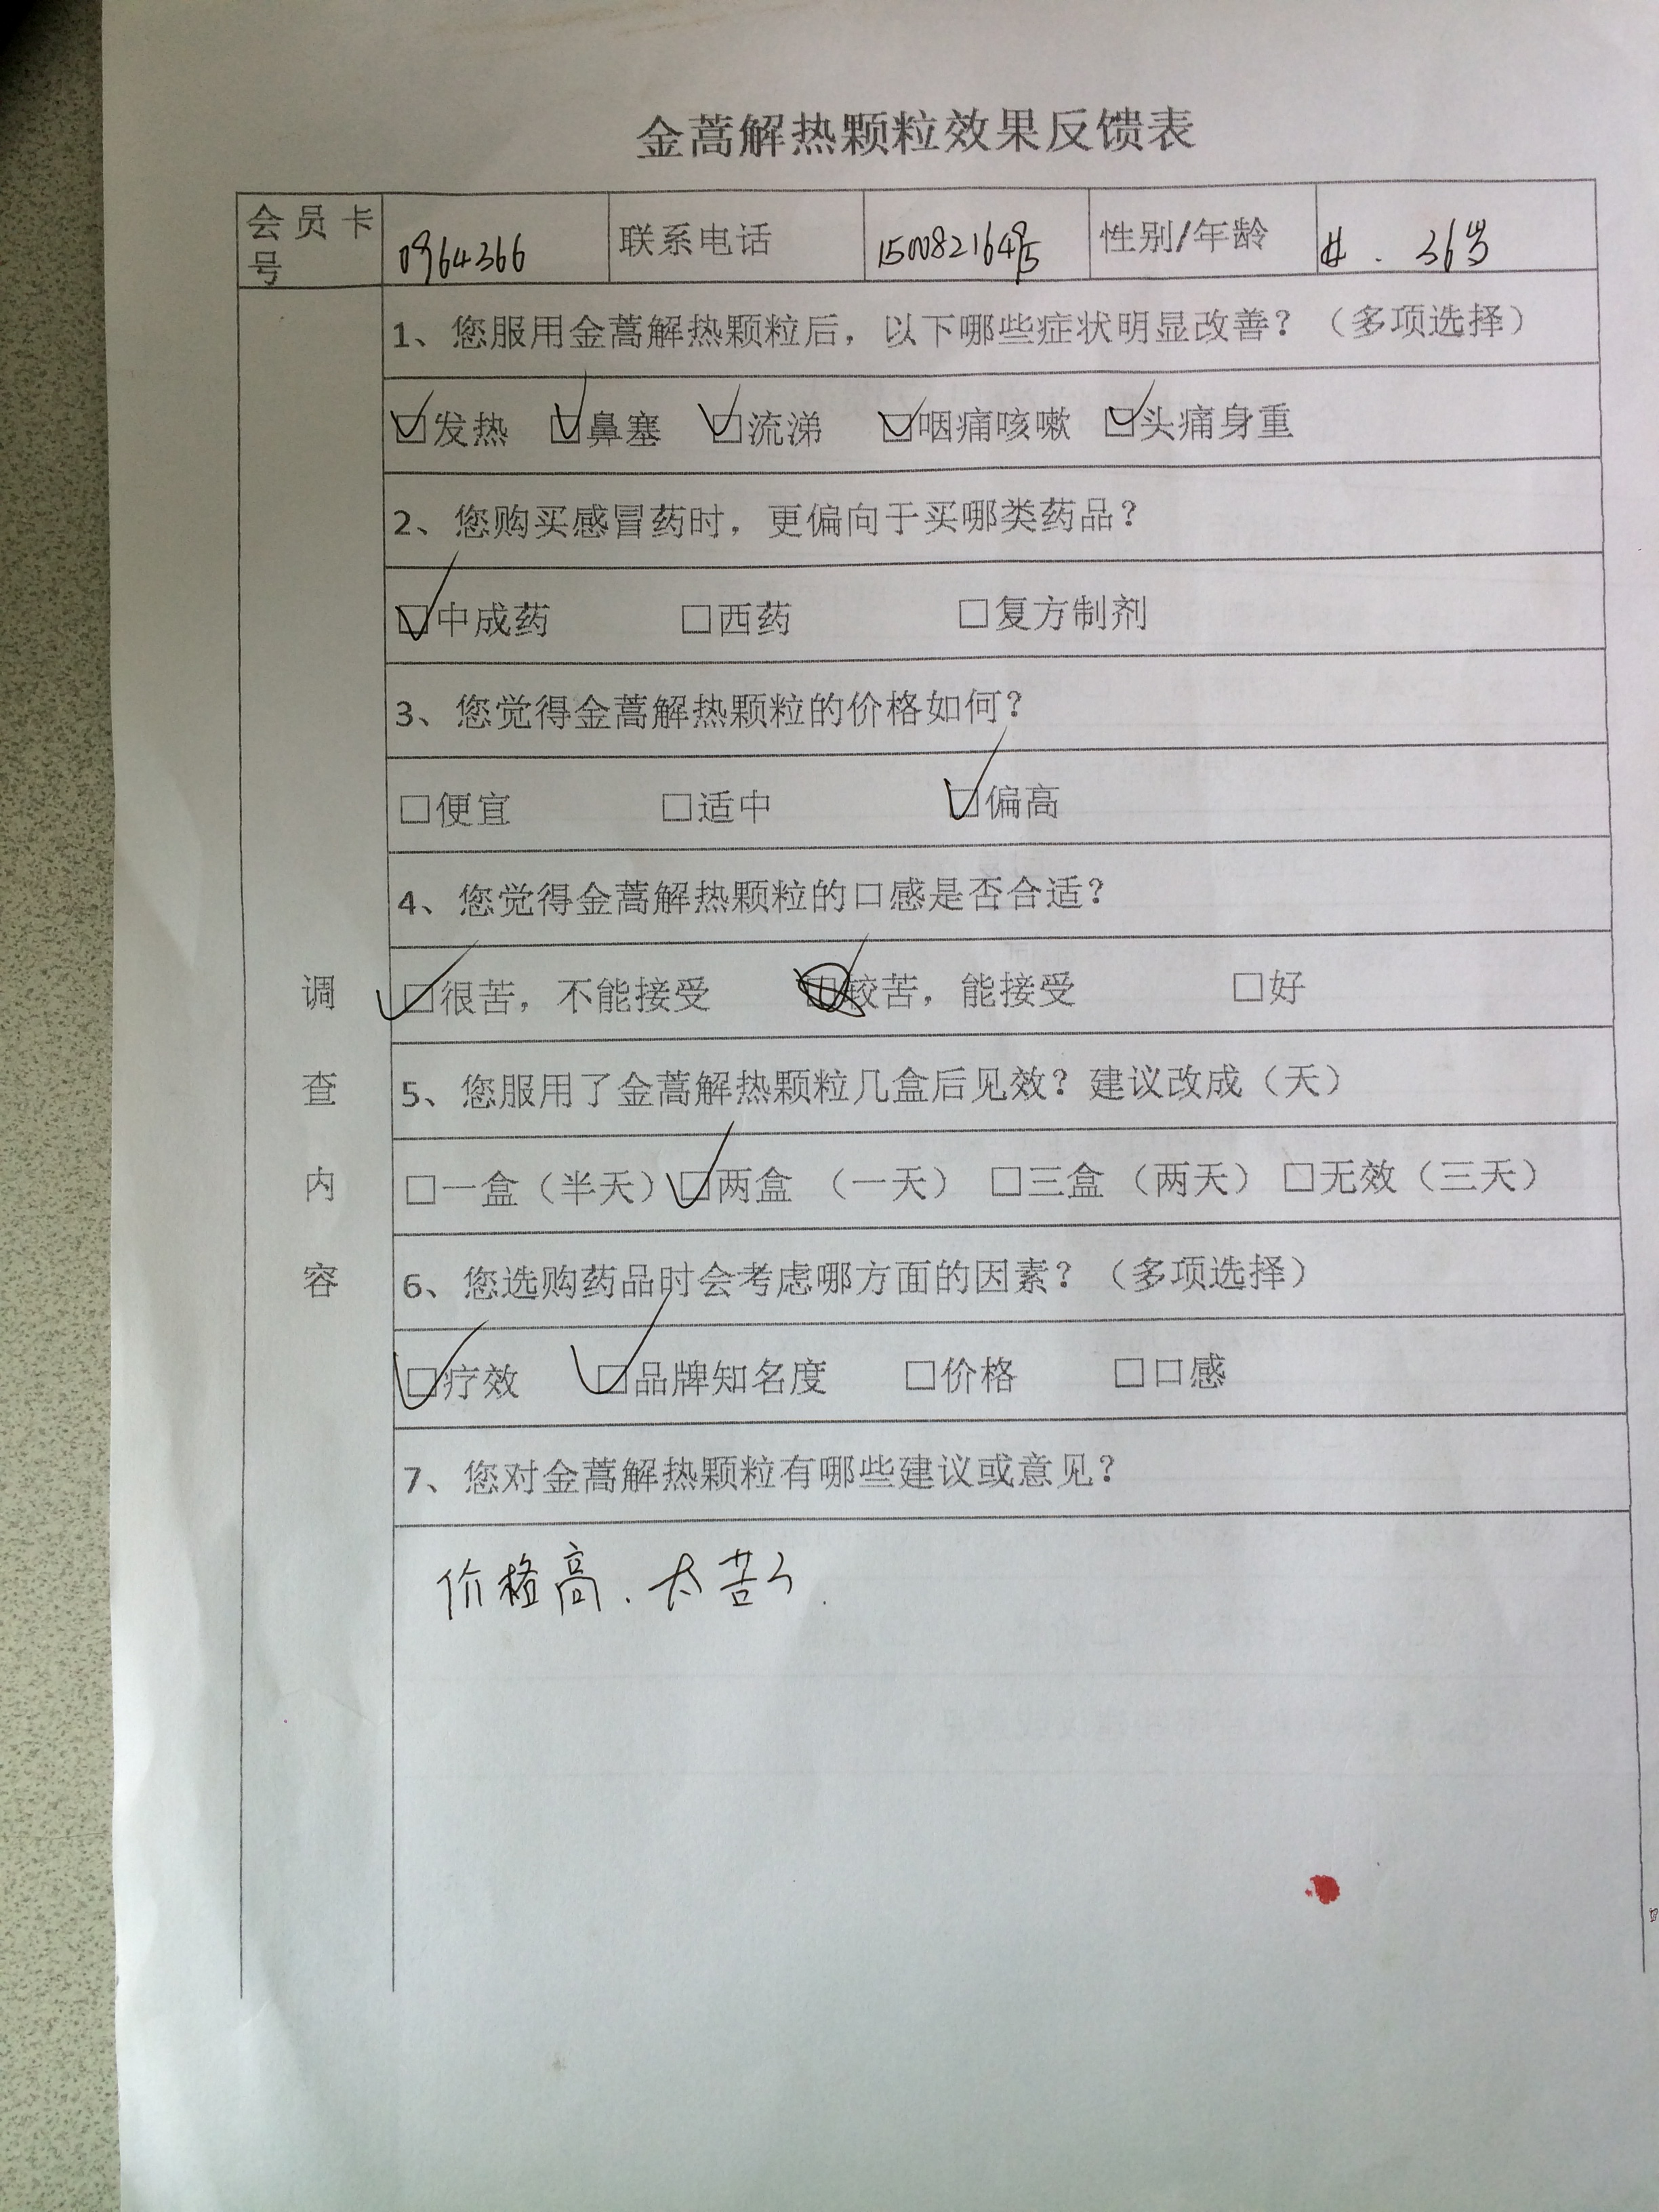 金蒿解热颗粒效果反馈表
会员卡号 0964366 联系电话 15008216495 性别/年龄 女. 36岁
1、您服用金蒿解热颗粒后，以下哪些症状明显改善？（多项选择）
☑发热 ☑鼻塞 ☑流涕 ☑咽痛咳嗽 ☑头痛身重
2、您购买感冒药时，更偏向于买哪类药品？
☑中成药 □西药 □复方制剂
3、您觉得金蒿解热颗粒的价格如何？
□便宜 □适中 ☑偏高
4、您觉得金蒿解热颗粒的口感是否合适？
☑很苦，不能接受 □较苦，能接受 □好
5、您服用了金蒿解热颗粒几盒后见效？建议改成（天）
□一盒（半天） ☑两盒 （一天） □三盒（两天） □无效（三天）
6、您选购药品时会考虑哪方面的因素？（多项选择）
☑疗效 ☑品牌知名度 □价格 □口感
7、您对金蒿解热颗粒有哪些建议或意见？
价格高、太苦了.
调
查
内
容